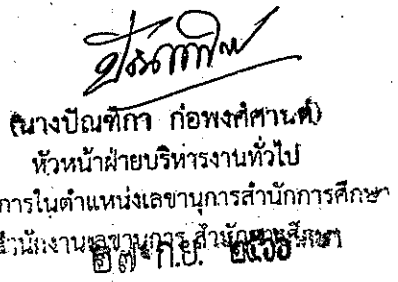 (นางปัณฑิกา ก่อพงศ์ศานต์)
หัวหน้าฝ่ายบริหารงานทั่วไป
การในตำแหน่งเลขานุการสำนักการศึกษา
สำนักงานเลขานุการ สำนักการศึกษา
๒๗ ก.ย. ๒๕๖๖